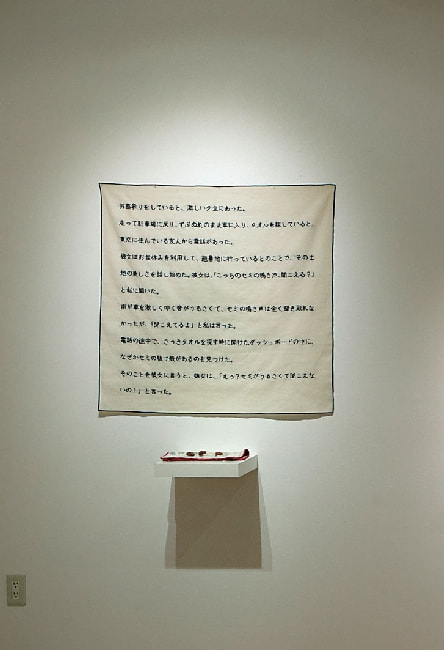 お墓参りをしていると、激しい夕立にあった。
走って駐車場に戻り、ずぶ濡れのまま車に入り、タオルを探していると、
東京に住んでいる友人から電話があった。
彼女はお盆休みを利用して、避暑地に行っているとのことで、その土
地の美しさを話し始めた。彼女は、「こっちのセミの鳴き声、聞こえる？」
と私に聞いた。
雨が車を激しく叩く音がうるさくて、セミの鳴き声は全く聞き取れな
かったが、「聞こえてるよ」と私は言った。
電話の途中で、さっきタオルを探す時に開けたダッシュボードの中に、
なぜかセミの抜け殻があるのを見つけた。
そのことを彼女に言うと、彼女は、「えっ？セミがうるさくて聞こえな
いの！」と言った。